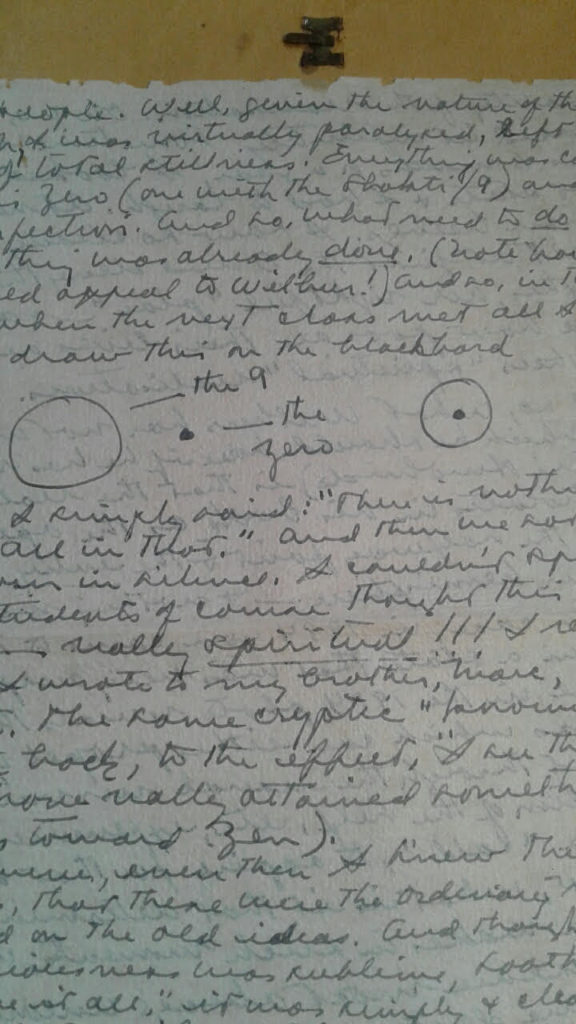 people. Well, given the nature of th
I was virtually paralyzed, left
of total stillness. Everything was c
is zero (one with the Shakti/9) and
fection. And so, what need to do
thing was already done. (note how
ed appeal to Wilber!) And so, in t
when the next class met all I
draw this on the blackboard
the 9
the
zero
I simply said: "There is noth
all in that." And then we
in silence. I couldn't sp
tudents of course thought this
really spiritual!!! I re
I wrote to my brother, Marc,
. The same cryptic "knowin
back, to the effect, "I see th
have really attained someth
s toward Zen).
even then I knew the
, that there were the ordinary
d on the old ideas. And though
iousness was sublime, sooth
it all," it was simply & clea